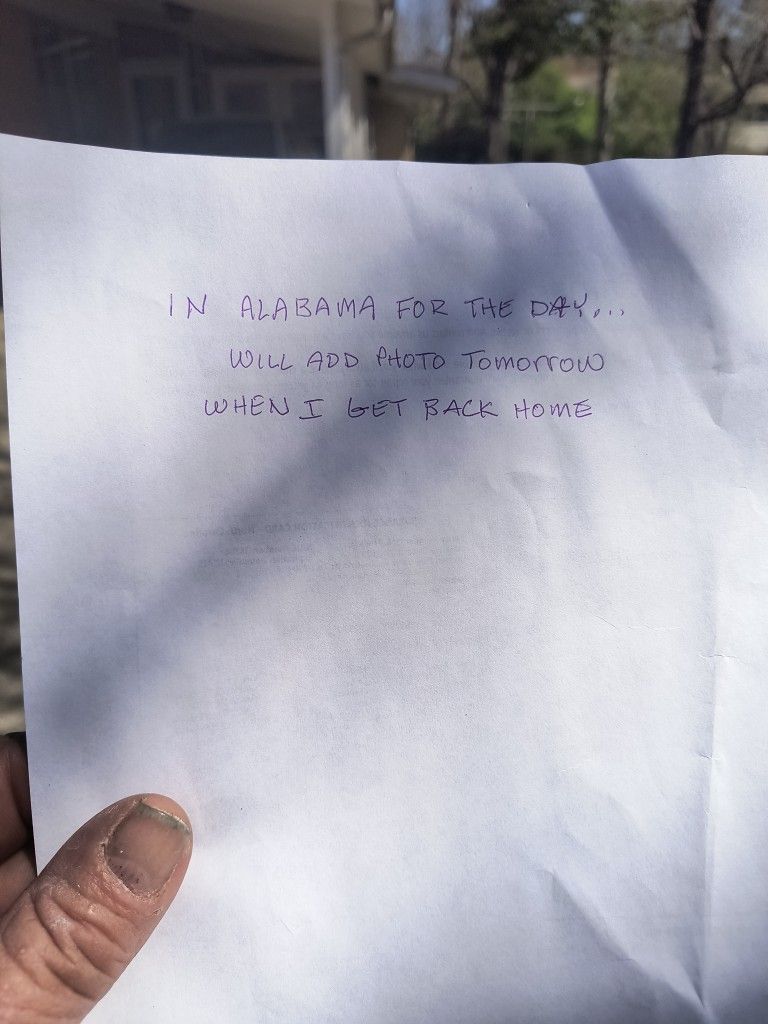 IN ALABAMA FOR THE DAY...
WILL ADD PHOTO TOMORROW
WHEN I GET BACK HOME